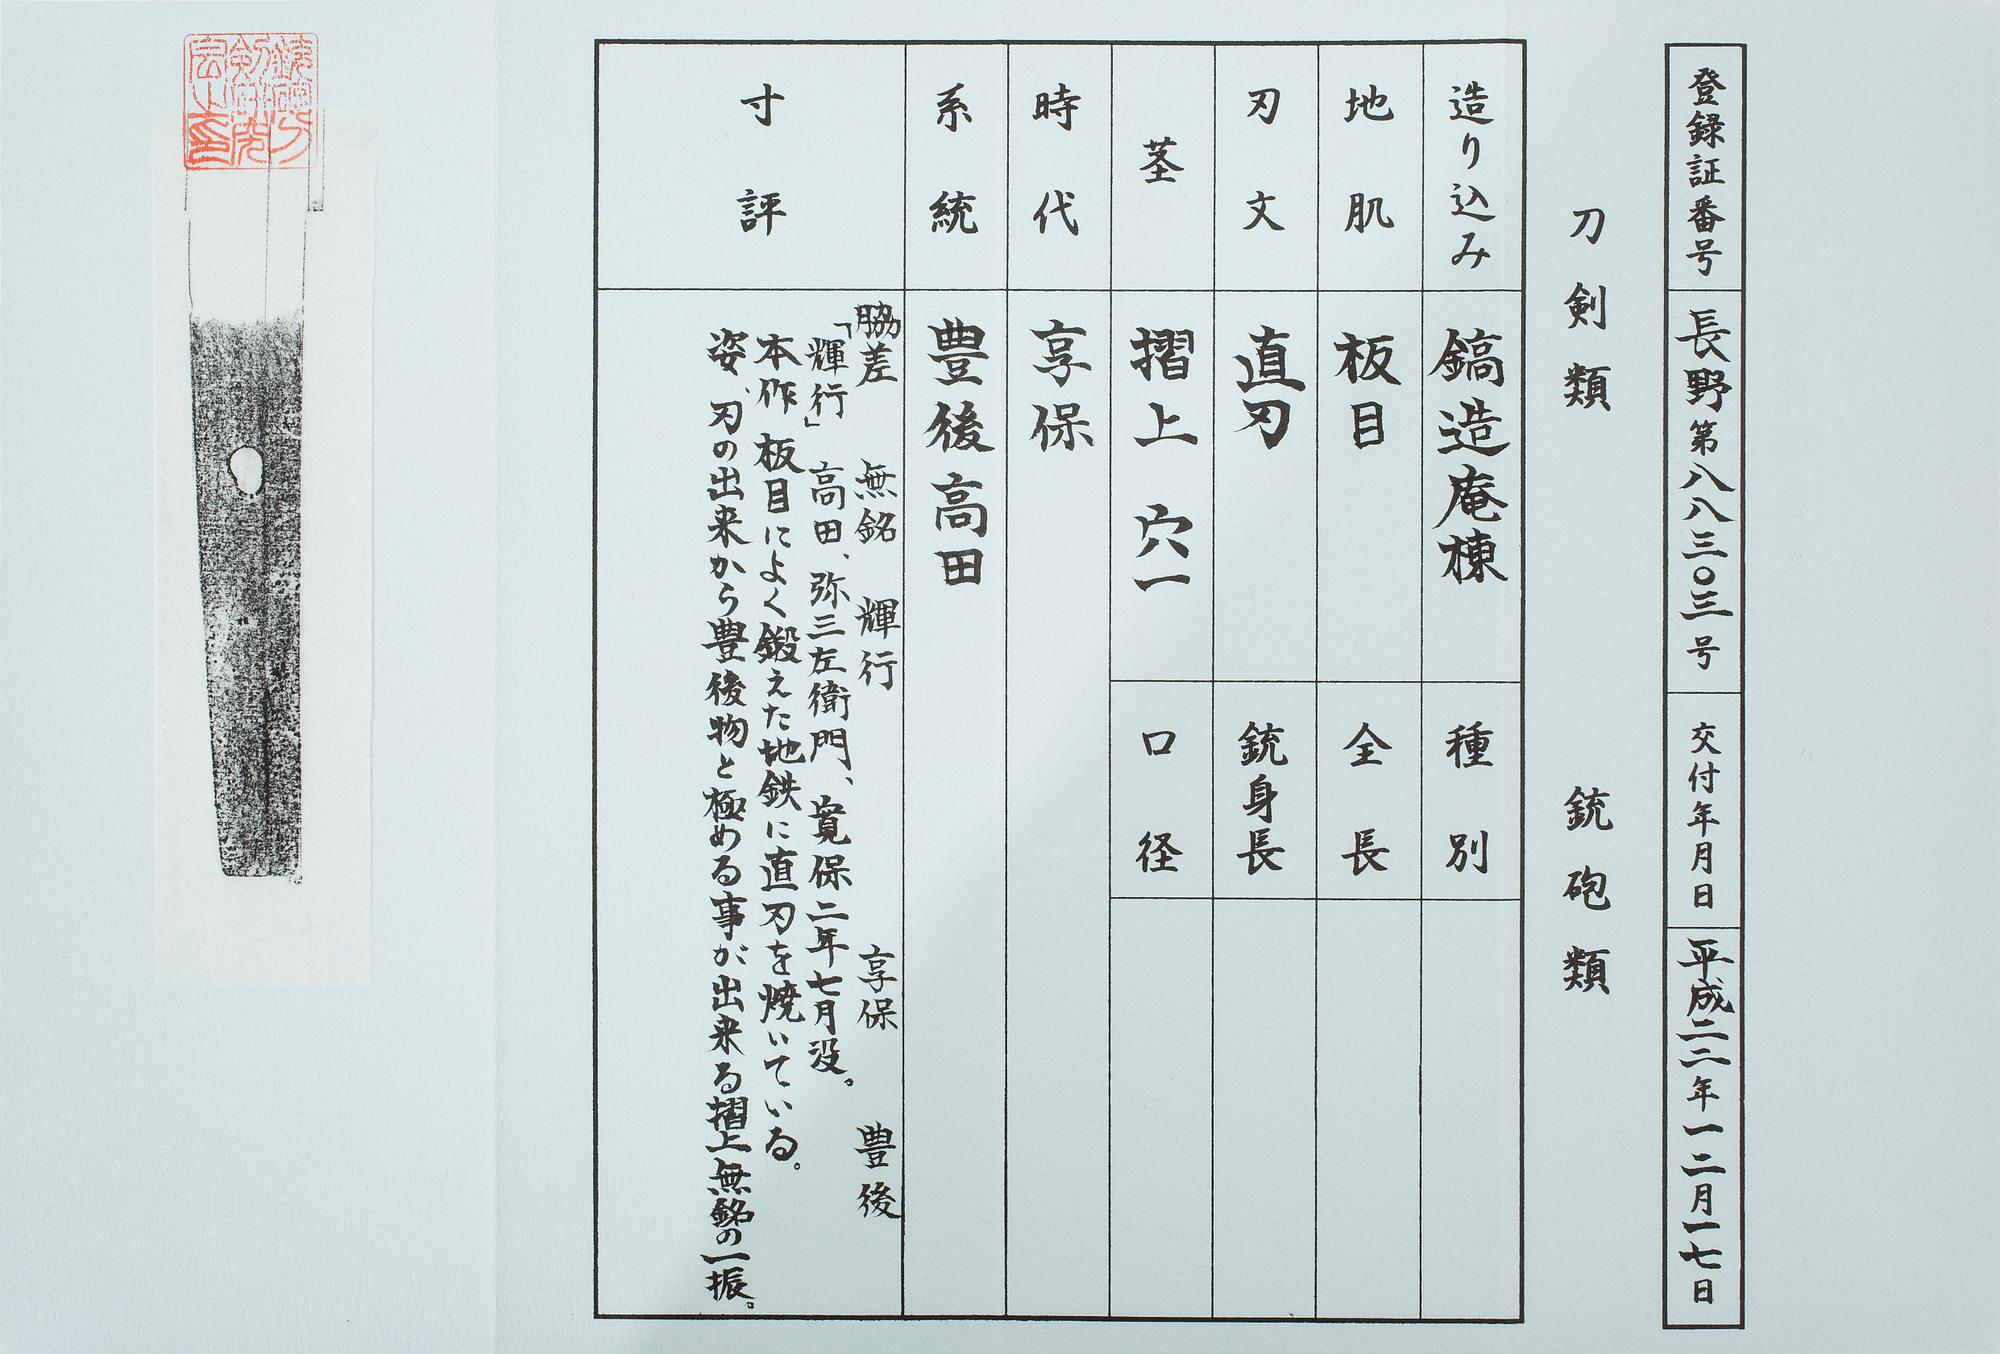 登録証番号 長野第八八三〇三号 交付年月日 平成二二年一二月一七日
刀剣類 銃砲類
造り込み 鎬造庵棟 種別
地肌 板目 全長
刃文 直刃 銃身長
茎 摺上 穴一 口径
時代 享保
系統 豊後高田
寸評
脇差 無銘 輝行 享保 豊後
「輝行」高田、弥三左衛門、寛保二年七月没。
本作板目によく鍛えた地鉄に直刃を焼いている。
姿、刃の出来から豊後物と極める事が出来る摺上無銘の一振。